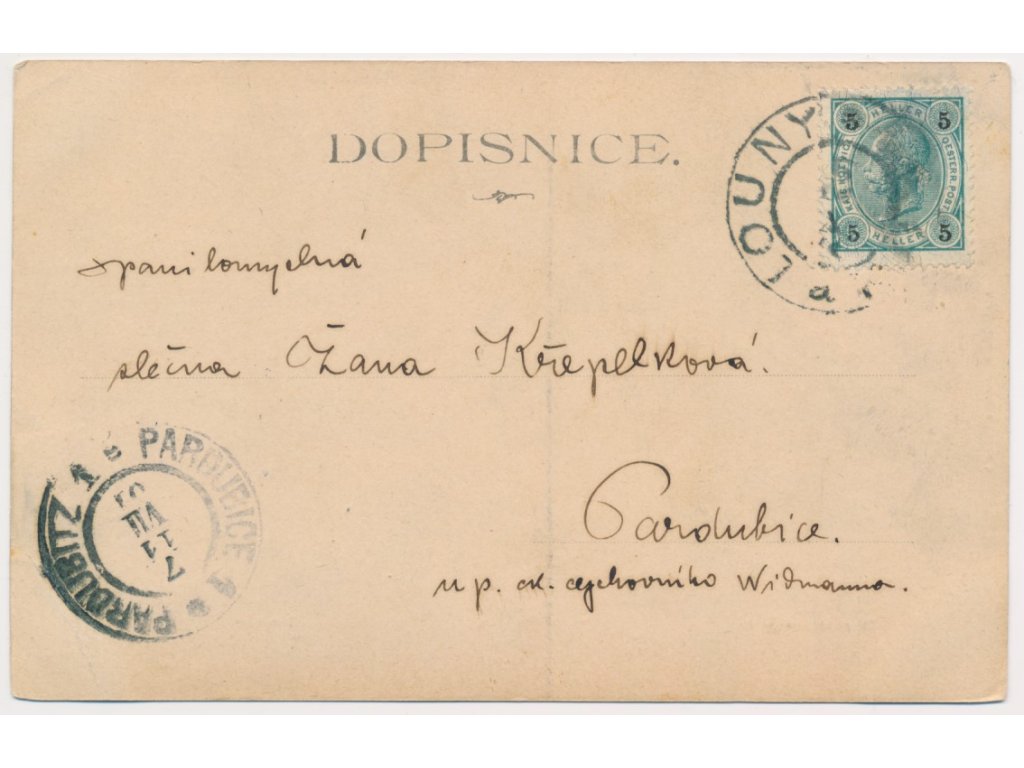 DOPISNICE.
LOUNY a
5 HELLER 5
KAIS. KÖN. OESTERR. POST
5 HELLER 5
spanilomyslná
slečna Žana Křepelková.
PARDUBICE 1
PARDUBITZ 1
Pardubice.
u p. ck. cejchovního Widmanna.